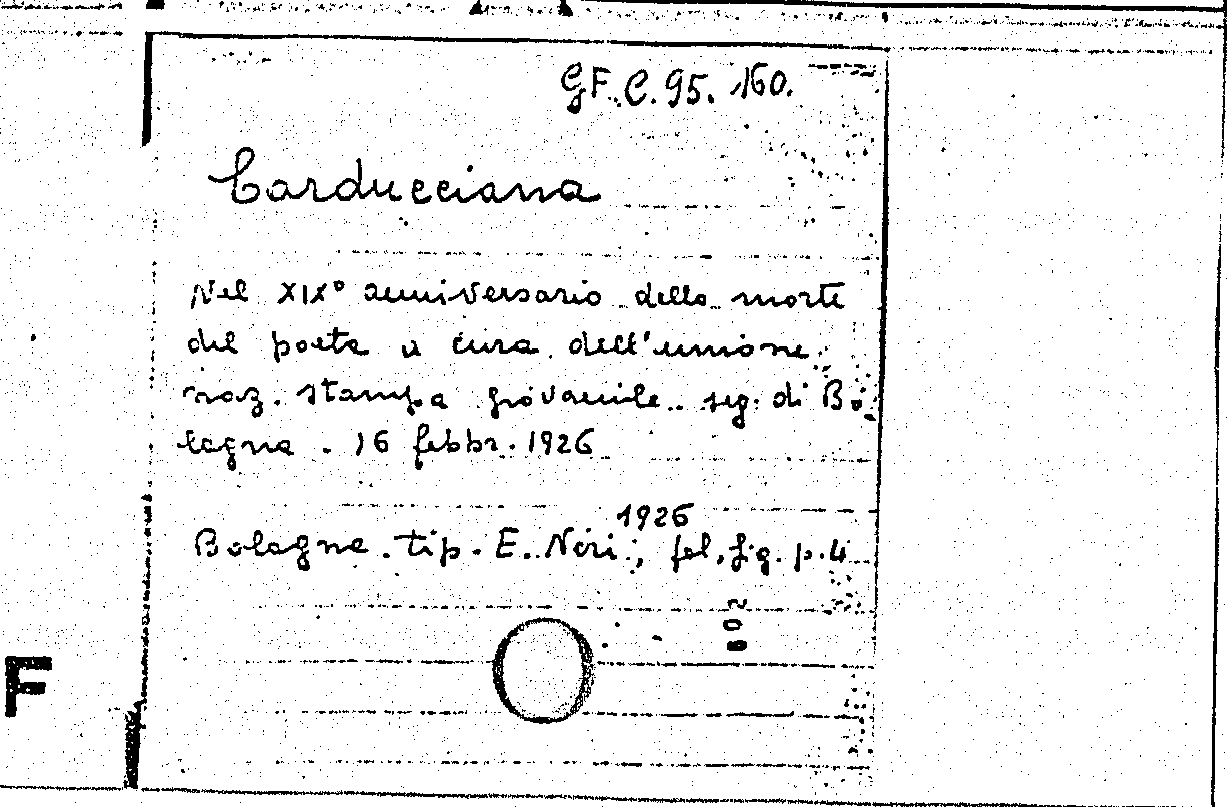 GF. C. 95. 160.
Carducciana
Nel XIX° anniversario della morte
del poeta a cura dell'unione
naz. stampa giovanile. seg. di Bo-
logna. 16 febbr. 1926
Bologna. tip. E. Neri, 1926; fol. fig. p. 4
F